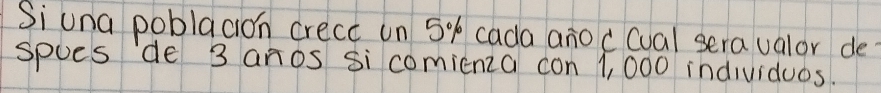 Si una poblacion crece un 5% cada año ¿ Cual sera valor de-
spues de 3 años si comienza con 1,000 individuos.